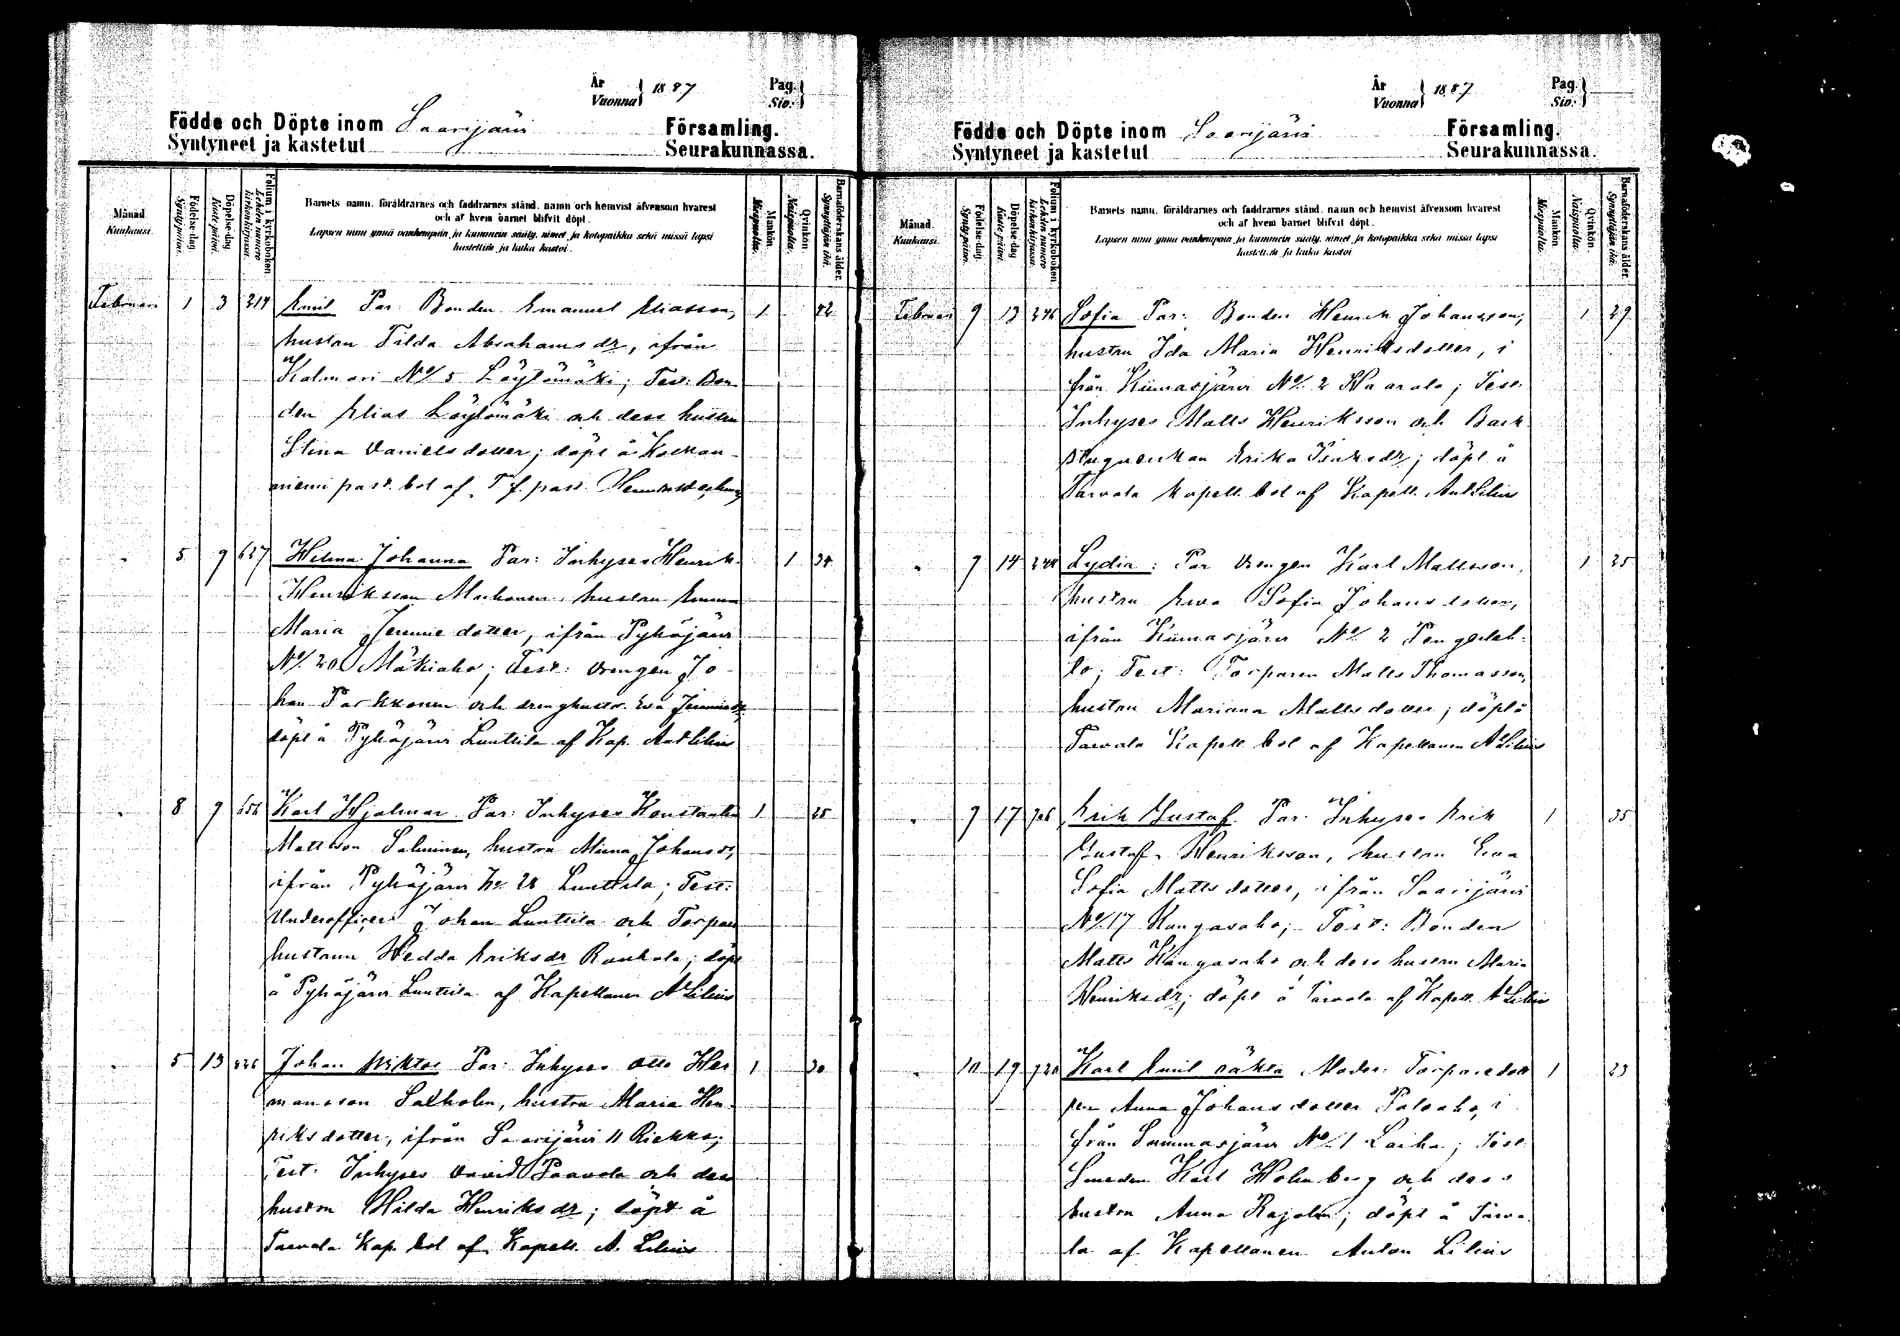 År
Vuonna } 1887
Pag.
Siv. }
Födde och Döpte inom Saarijärvi Församling.
Syntyneet ja kastetut Seurakunnassa.
Månad.
Kuukausi.
Födelse-dag.
Syntypäivä.
Döpelse-dag.
Kaste päivä.
Folium i kyrkoboken
Lehden numero
kirkonkirjassa.
Barnets namn, föräldrarnes och faddrarnes stånd, namn och hemvist äfvensom hvarest
och af hvem barnet blifvit döpt.
Lapsen nimi ynnä vanhempain ja kummein sääty, nimet ja kotopaikka sekä missä lapsi
kastettiin ja kuka kastoi.
Mankön.
Miespuolta.
Qvinkön.
Naispuolta.
Barnaföderskans ålder.
Synnyttäjän ikä.
Februari 1 3 214 Emil Par. Bonden Emanuel Eliasson, 1 42
hustrun Tilda Abrahamsdr, ifrån
Kalmari No/. 5 Löytömäki; Test: Bon-
den Elias Löytömäki och dess hustru
Stina Danielsdotter; döpt å Kolkan-
niemi past. bol af T. f. past.
" 5 9 627 Helena Johanna Par: Inhyses Henrik 1 34
Henriksson Markonen hustrun Emma
Maria Jeremiedotter, ifrån Pyhäjärvi
No/. 20 Mäkiaho; Test: Drengen Jo-
han Parkkonen och drenghustr. Eva
döpt å Pyhäjärvi Lunttila af Kap. Ant Lilius
" 8 9 656 Karl Hjalmar Par: Inhyses Konstantin 1 25
Mattsson Salminen, hustru Miina Johansdr,
ifrån Pyhäjärvi No 28 Lunttila; Test:
Underofficer Johan Lunttila och Torpare
hustrun Hedda Eriksdr Rauhala; döpt
å Pyhäjärvi Lunttila af Kapellanen A Lilius
" 5 13 Johan Viktor Par: Inhyses Otto Her 1 30
mansson Salholm, hustru Maria Hen-
riksdotter, ifrån Saarijärvi 11 Riekko;
Test. Inhyses David Paavola och dess
hustru Hilda Henriksdr; döpt å
Tarvala Kap. bol af Kapell. A. Lilius
År
Vuonna } 1887
Pag.
Siv. }
Födde och Döpte inom Saarijärvi Församling.
Syntyneet ja kastetut Seurakunnassa.
Månad.
Kuukausi.
Födelse-dag.
Syntypäivä.
Döpelse-dag
Kaste päivä.
Folium i kyrkoboken
Lehden numero
kirkonkirjassa.
Barnets namn, föräldrarnes och faddrarnes stånd, namn och hemvist äfvensom hvarest
och af hvem barnet blifvit döpt.
Lapsen nimi ynnä vanhempain ja kummein sääty, nimet ja kotopaikka sekä missä lapsi
kastettiin ja kuka kastoi
Mankön.
Miespuolta.
Qvinkön.
Naispuolta.
Barnaföderskans ålder.
Synnyttäjän ikä.
Februari 9 13 246 Sofia Par: Bonden Henrik Johansson, 1 29
hustru Ida Maria Henriksdotter, i
från Kiimasjärvi No/. 2 Haarala; Test:
Inhyses Matts Henriksson och Back
stugueskan Erika Isaksdr; döpt å
Tarvala Kapell. bol af Kapell. Ant Lilius
" 9 14 248 Lydia: Par Drengen Karl Mattsson, 1 25
hustru Eva Sofia Johansdotter,
ifrån Kiimasjärvi No/. 2
lo; Test: Torparen Matts Thomasson,
hustru Mariana Mattsdotter; döpt å
Tarvala Kapell bol af Kapellanen A Lilius
" 9 17 Erik Gustaf. Par. Inhyses Erik 1 35
Gustaf Henriksson, hustru Eva
Sofia Mattsdotter, ifrån Saarijärvi
No/. 17 Kangasaho; Test: Bonden
Matts Kangasaho och dess hustru Maria
Henriksdr; döpt å Tarvala af Kapell. A Lilius
" 10 19 720 Karl Emil oäkta Moder: Torparedott 1 23
ren Anna Johansdotter Paloaho, i
från Summasjärvi No/. 1 Laiha; Test
Smeden Karl Holmberg och dess
hustru Anna; döpt å Tarva
la af Kapellanen Anton Lilius